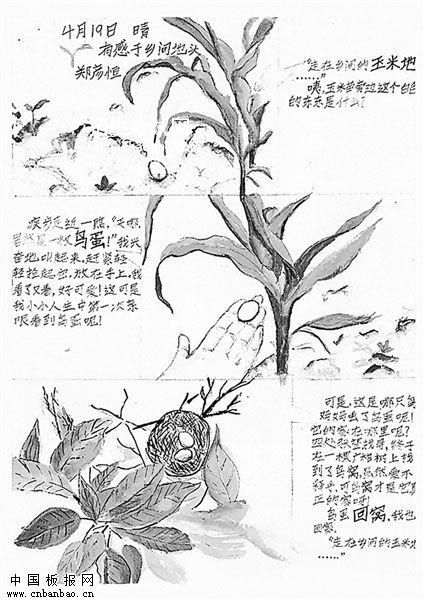 4月19日 晴
有感于乡间地头
郑彦恒
"走在乡间的玉米地
……"
咦,玉米苗旁边这个白白
的东东是什么?
疾步走近一瞧,"天哪
居然是一枚鸟蛋!"我兴
奋地叫起来,赶紧轻
轻拾起它,放在手上,我
看了又看,好可爱!这可是
我小小人生中第一次亲
眼看到鸟蛋呢!
可是,这是哪只鸟
妈妈丢了鸟蛋呢!
它的家在哪里呢?
四处张望找寻,终于
在一棵 树上找
到了鸟窝,虽然爱不
释手,可鸟窝才是它真
正的家呀!
鸟蛋回窝,我也
回家。
"走在乡间的玉米地
……"
中国板报网
www.cnbanbao.cn